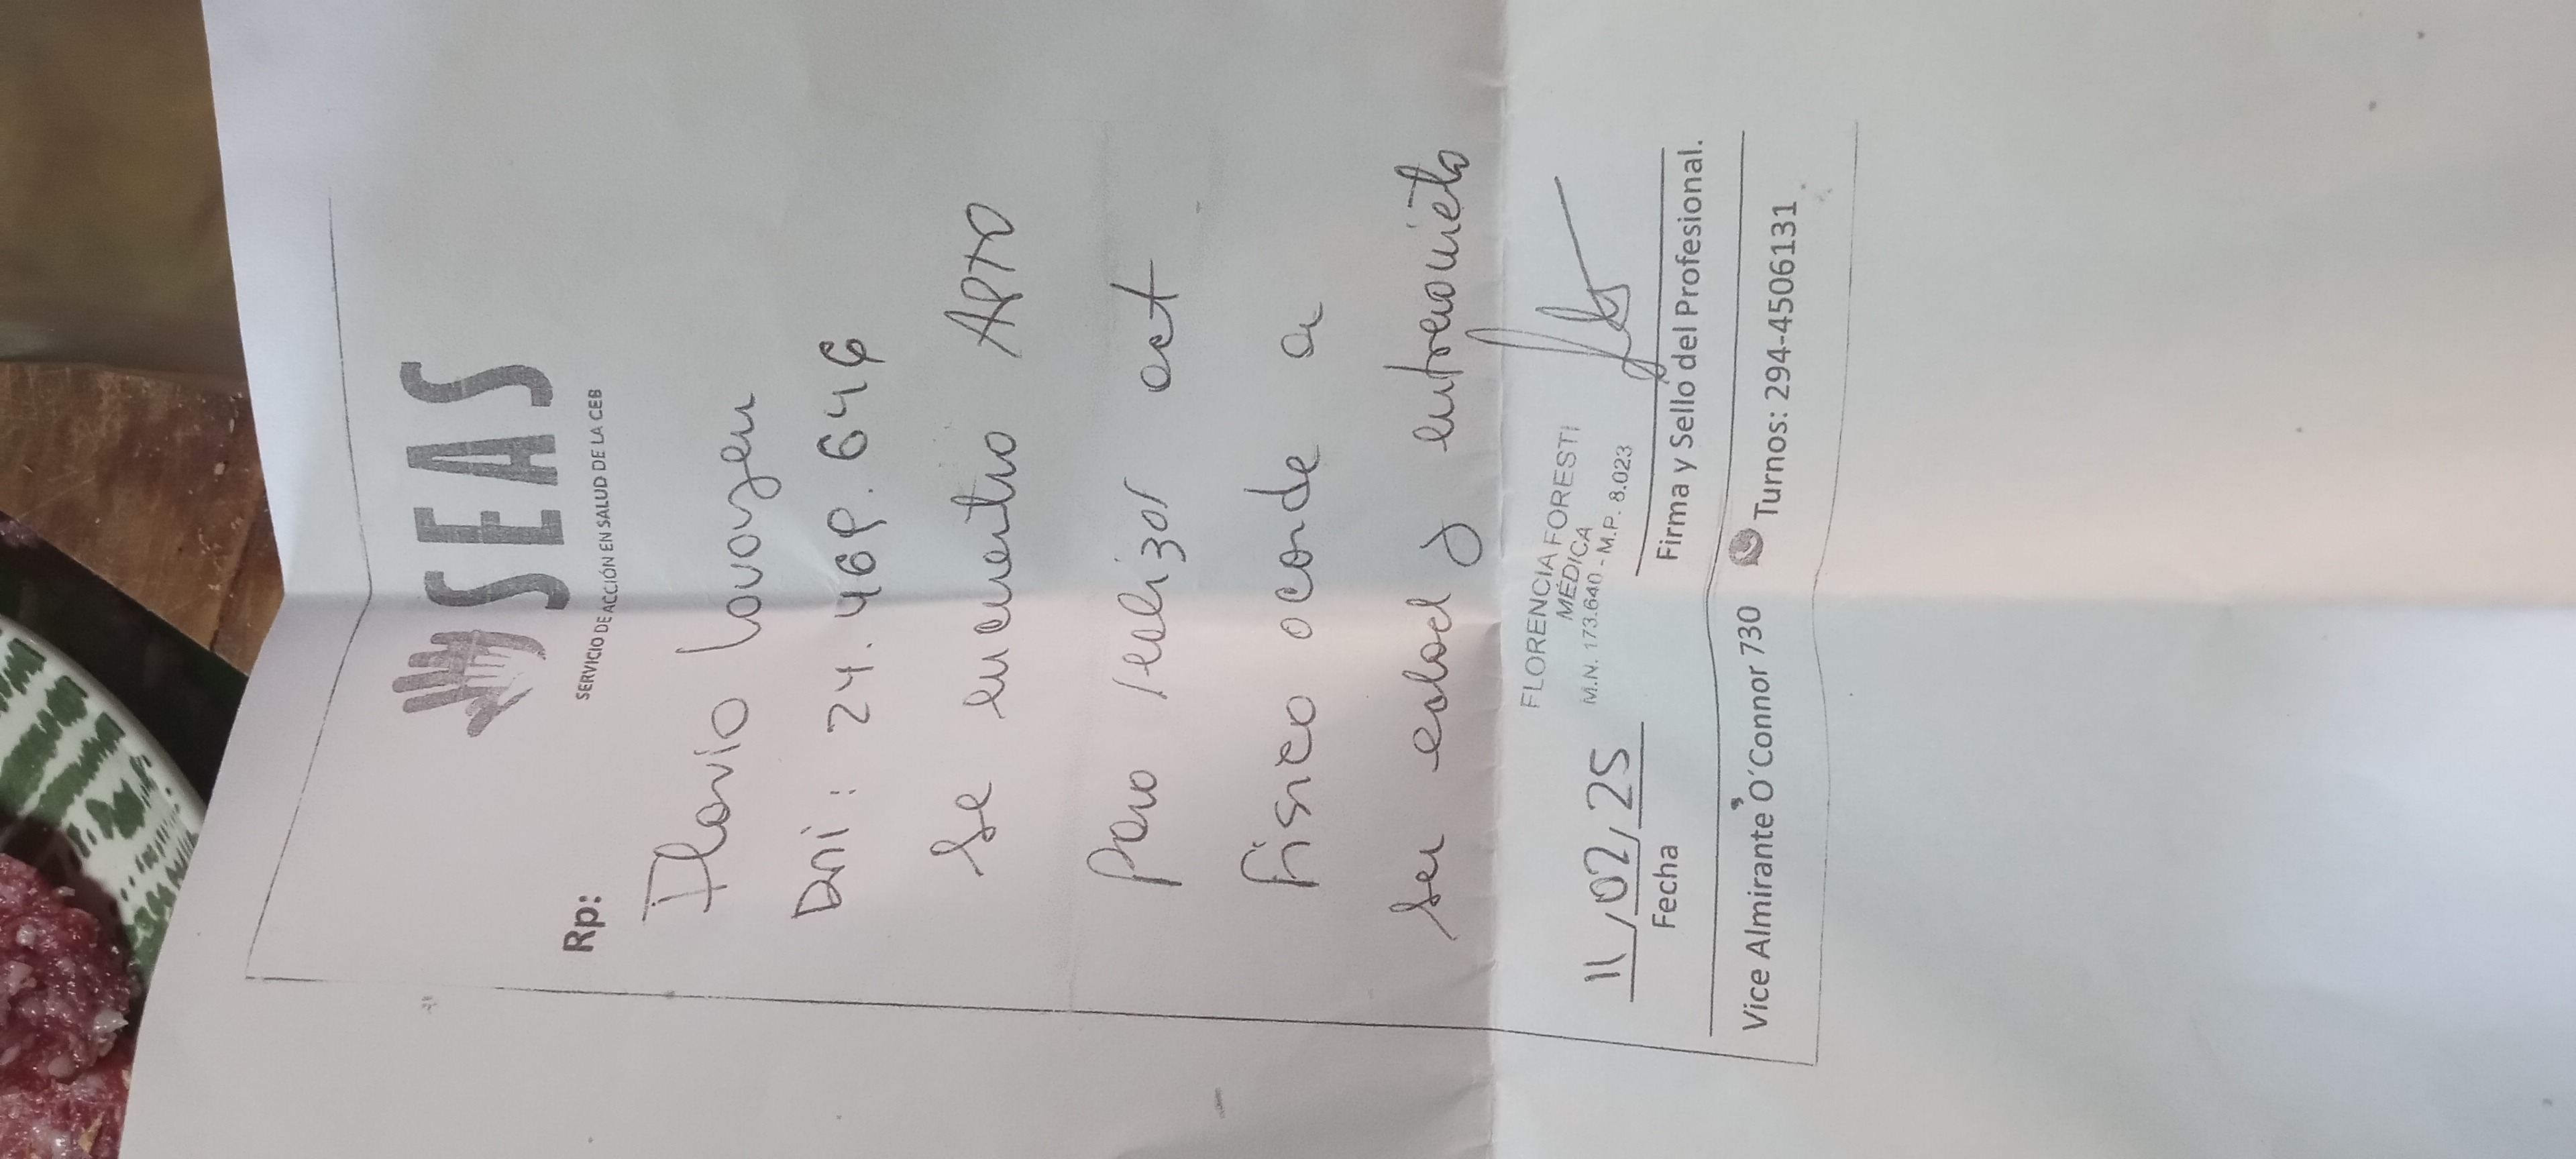 SEAS
SERVICIO DE ACCIÓN EN SALUD DE LA CEB
Rp:
Flavio Lovayen
DNI: 24.469.646
Se encuentra APTO
para realizar act
física acorde a
su edad y entrenamiento
FLORENCIA FORESTI
MÉDICA
M.N. 173.640 - M.P. 8.023
11/02/25
Fecha
Firma y Sello del Profesional.
Vice Almirante O'Connor 730
Turnos: 294-4506131